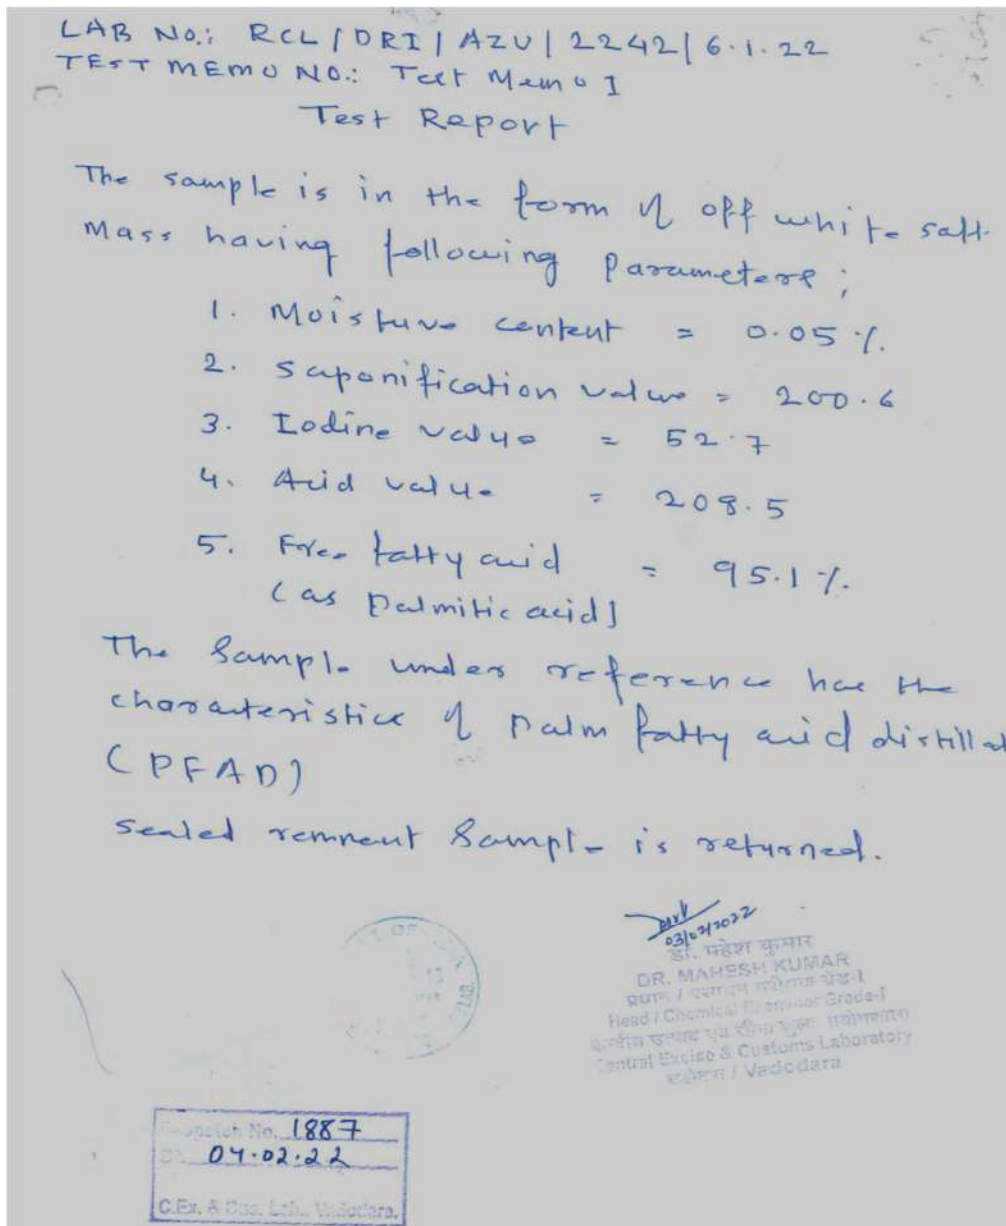 LAB NO.: RCL/DRI/AZU/2242/6.1.22
TEST MEMO NO.: Test Memo I
Test Report
The sample is in the form of off white soft
mass having following parameters;
1. Moisture content = 0.05 %.
2. Saponification value = 200.6
3. Iodine value = 52.7
4. Acid value = 208.5
5. Free fatty acid = 95.1 %.
(as Palmitic acid)
The sample under reference has the
characteristics of Palm fatty acid distillat
(PFAD)
Sealed remnant Sample is returned.
03/02/2022
डॉ. महेश कुमार
DR. MAHESH KUMAR
Head / Chemical Examiner Grade-I
Central Excise & Customs Laboratory
वडोदरा / Vadodara
Despatch No. 1887
Dt. 04.02.22
C.Ex. & Cus. Lab., Vadodara.